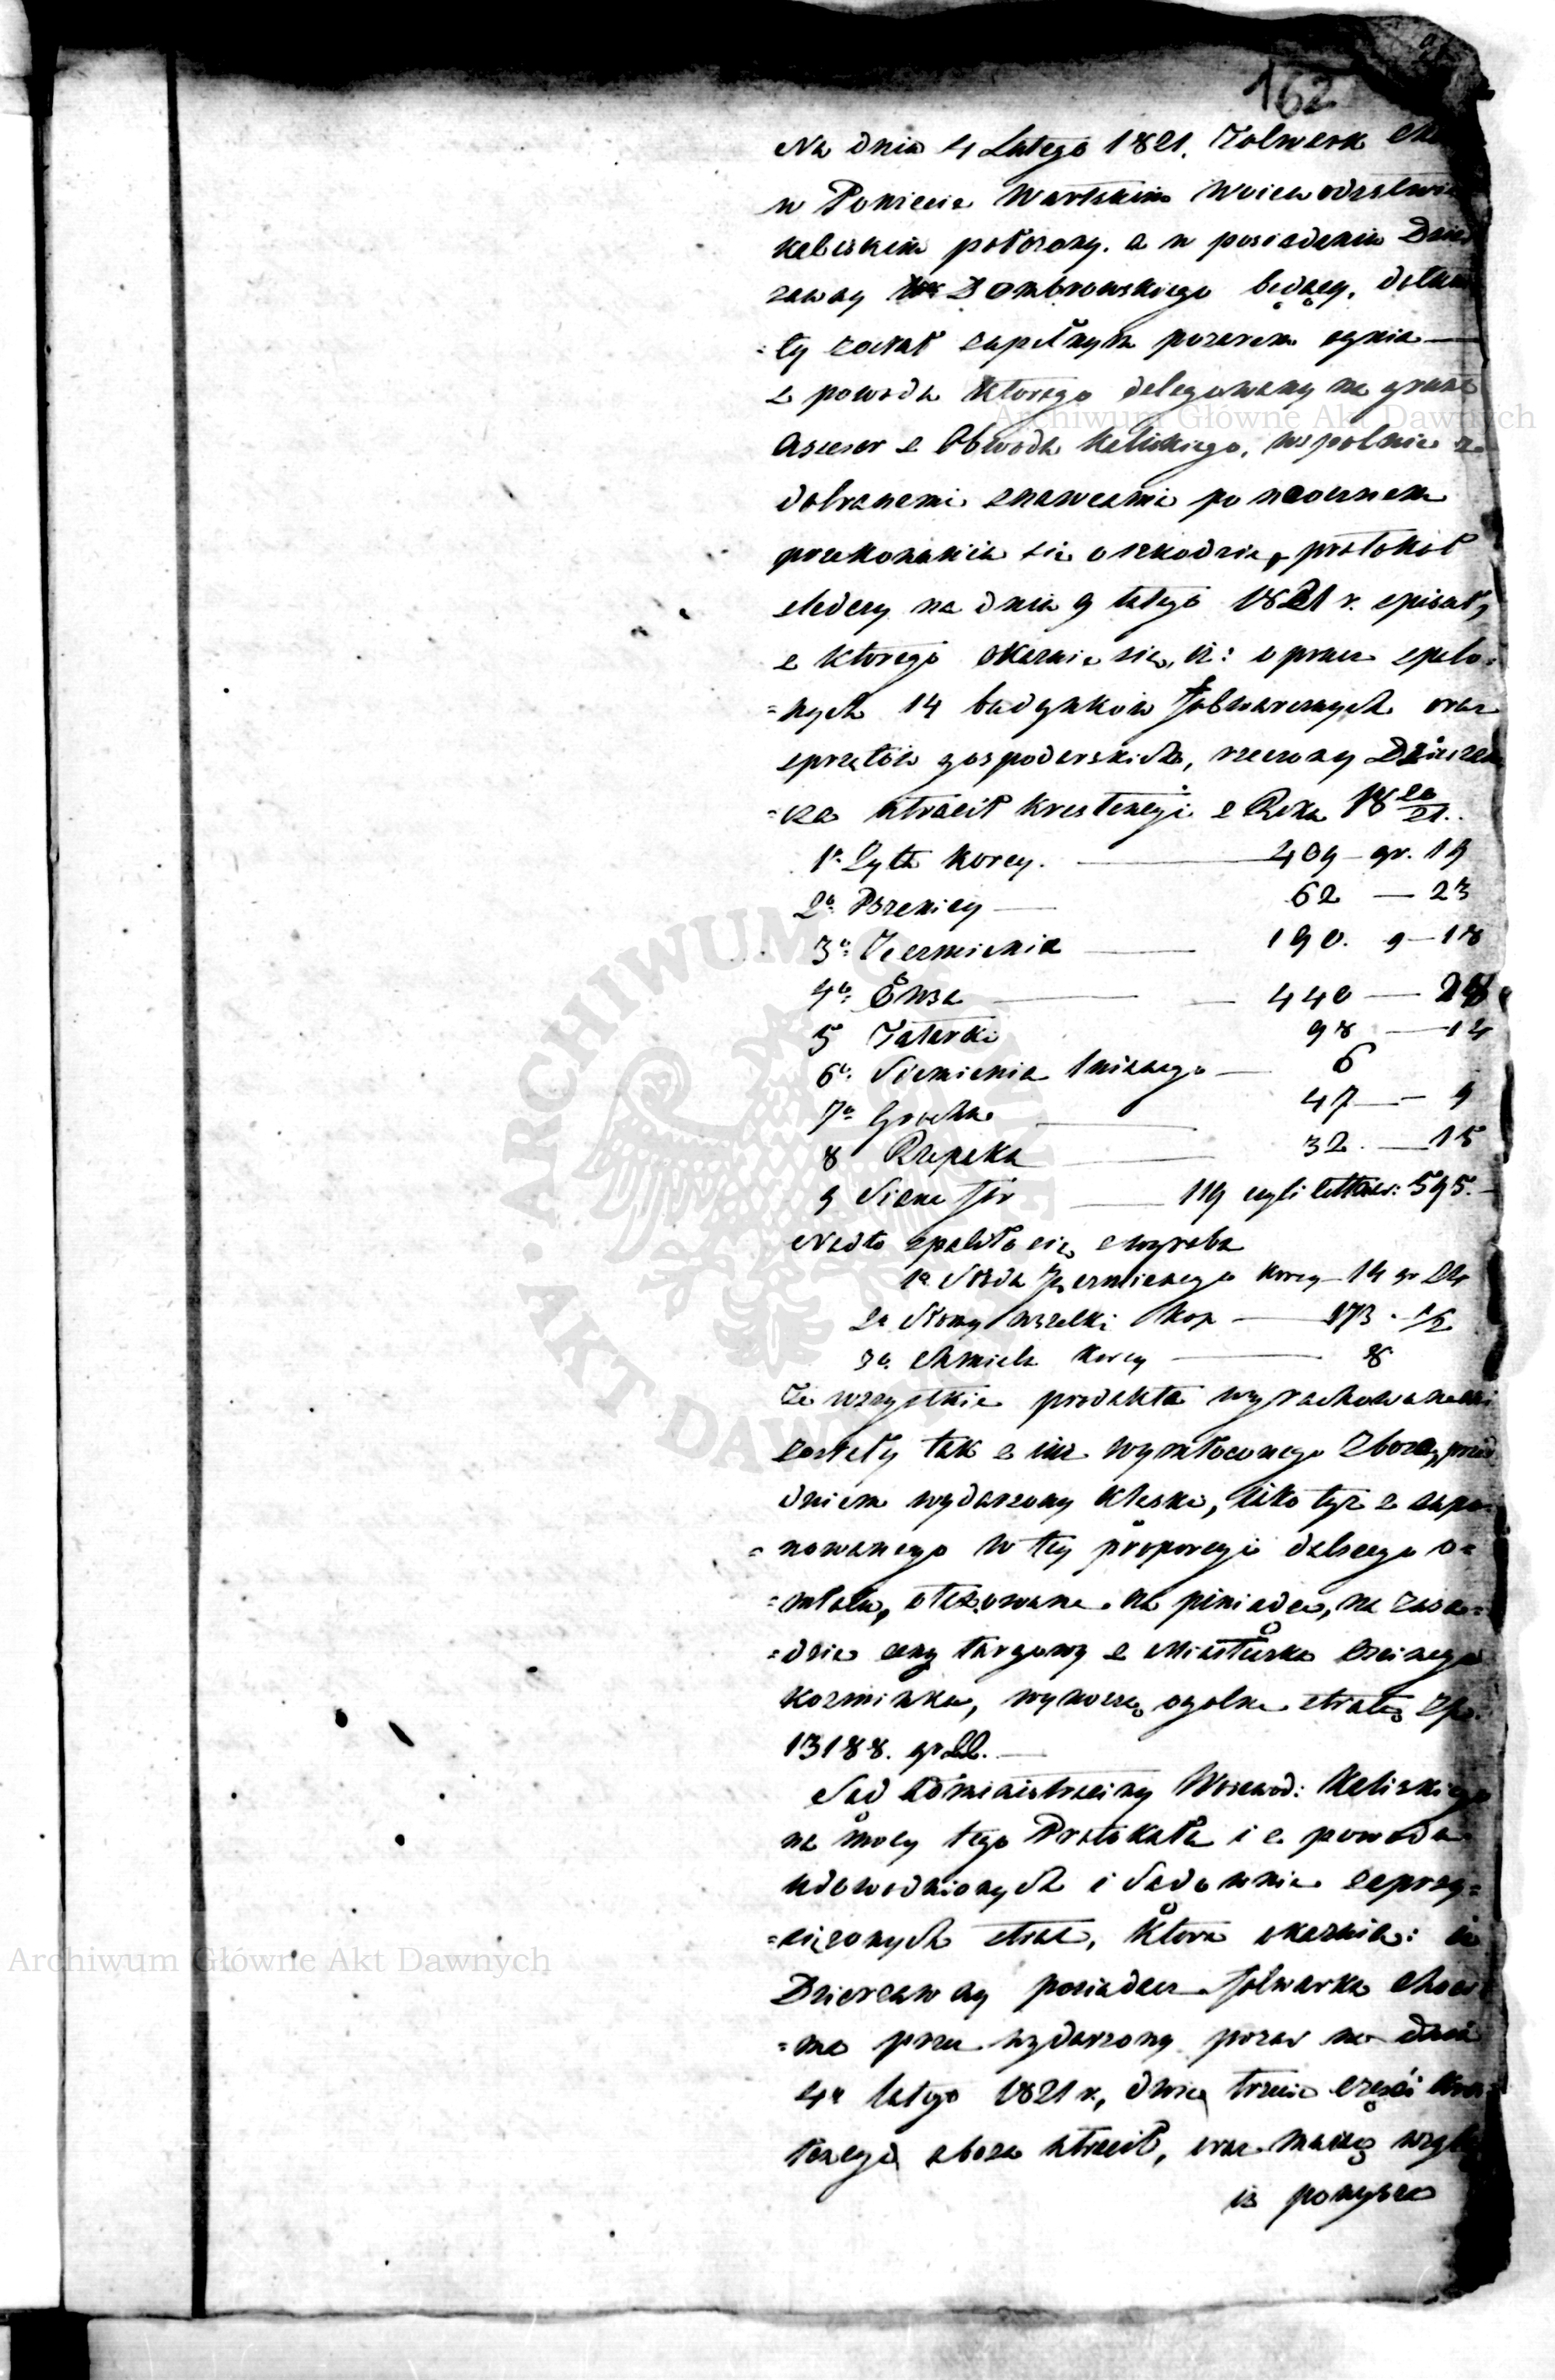 162
Na dniu 4 Lutego 1821. Folwark
w Powiecie Wartskim Woiewodztwie
kaliskim położony. a w posiadaniu Dzier
zawcy Dombrowskiego będący, dotknię
=ty został zupełnym pożarem ognia —
z powodu którego delegowany na grunt
Assesor z Obwodu Kaliskiego, wspolnie z
dobranemi znawcami po naocznem
przekonaniu się o szkodzie, protokoł
sledczy na dniu 9 lutego 1821 r. spisał,
z którego okazuie się, iż: oprocz spalo=
=nych 14 budynków folwarcznych oraz
sprzętów gospodarskich, rzeczony Dzierzaw
=ca utracił krestencyi z Roku 18 20/21.
1o Żyta korcy. — 409 — gr. 19
2o Pszenicy — 62 — 23
3o Jęczmienia — 190. g — 18
4o Owsa — 440 —
5 Tatarki 98 — 14
6o Siemienia lnianego — 6
7o Grochu — 47 — 9
8 Rzepaku — 32. — 15
9 Siana for — 119 czyli cettnar: 595. —
Nadto spaliło się z wyrobu
1o Słodu Jęczmiennego korcy — 14 gr 24
2o Słomy wszelki kop — 173 · 1/2
3o Chmielu korcy — 8
Te wszystkie produkta wyrachowanemi
zostały tak z iuż wymłoconego zboża, przed
dniem wydarzony klęski, iako tyż z
=nowanego w tey proporcyi dalszego o=
=młotu, otaxowane na pieniądze, na zasa=
=dzie ceny targowy z Miasteczka
Kozminka, wynoszą ogolną stratę Złp.
13188. gr 22. —
Sąd Administraciny Woiewod: Kaliskiego
na mocy tego Protokułu i z powodu
udowodnionych i Sądownie zaprzy=
=siężonych strat, która okazuie: iż
Dzierzawcy posiadacz folwarku
=ma przez wydarzony pożar na dniu
4o lutego 1821 r., dwie trzecie części kres
tencyi zboża utracił, oraz maiąc wzglą
iż powyższe